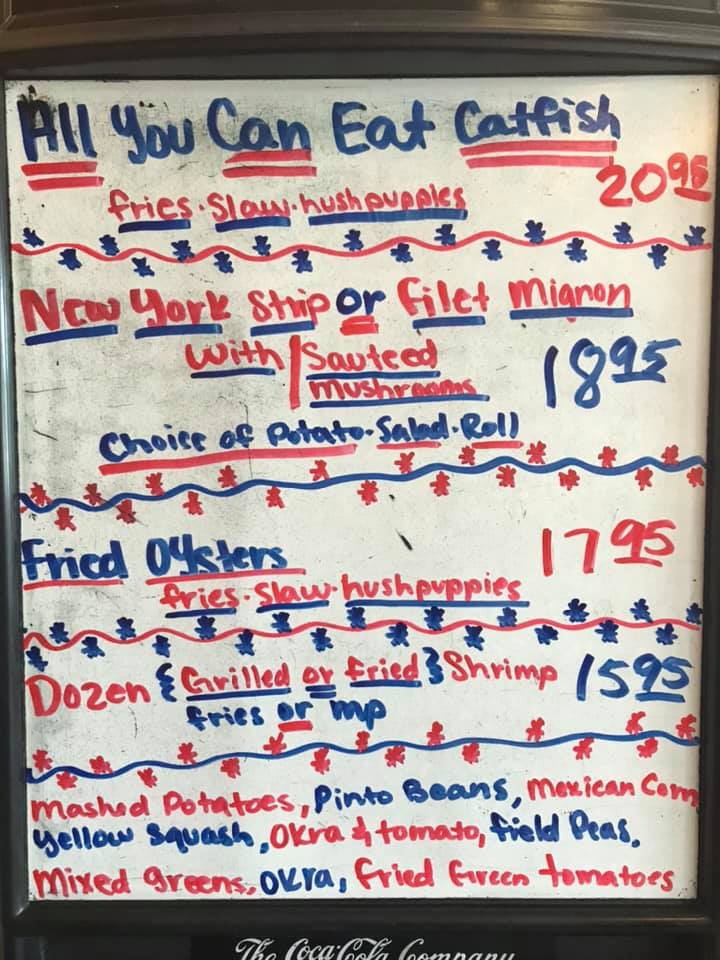 All You Can Eat Catfish
20 95
fries · Slaw · hushpuppies
New York Strip or Filet Mignon
with Sauteed
mushrooms
18 95
Choice of Potato · Salad · Roll
Fried Oysters
17 95
fries · Slaw · hushpuppies
Dozen {Grilled or fried} Shrimp
15 95
fries or mp
Mashed Potatoes, Pinto Beans, Mexican Corn
Yellow Squash, Okra & tomato, field Peas,
Mixed greens, Okra, Fried Green tomatoes
The Coca-Cola Company